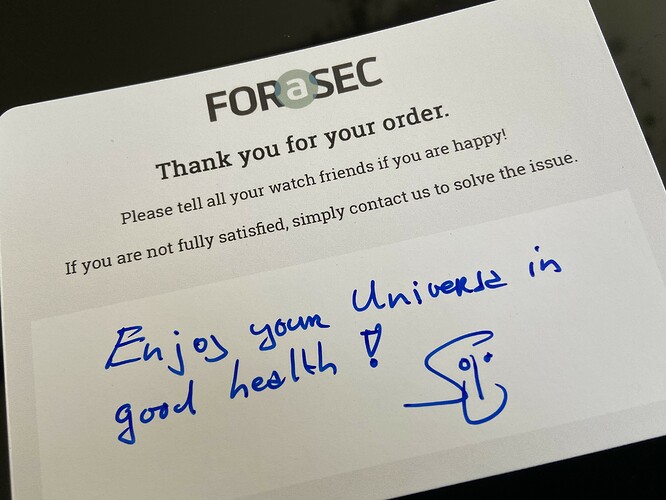 FORaSEC
Thank you for your order.
Please tell all your watch friends if you are happy!
If you are not fully satisfied, simply contact us to solve the issue.
Enjoy your Universe in
good health!